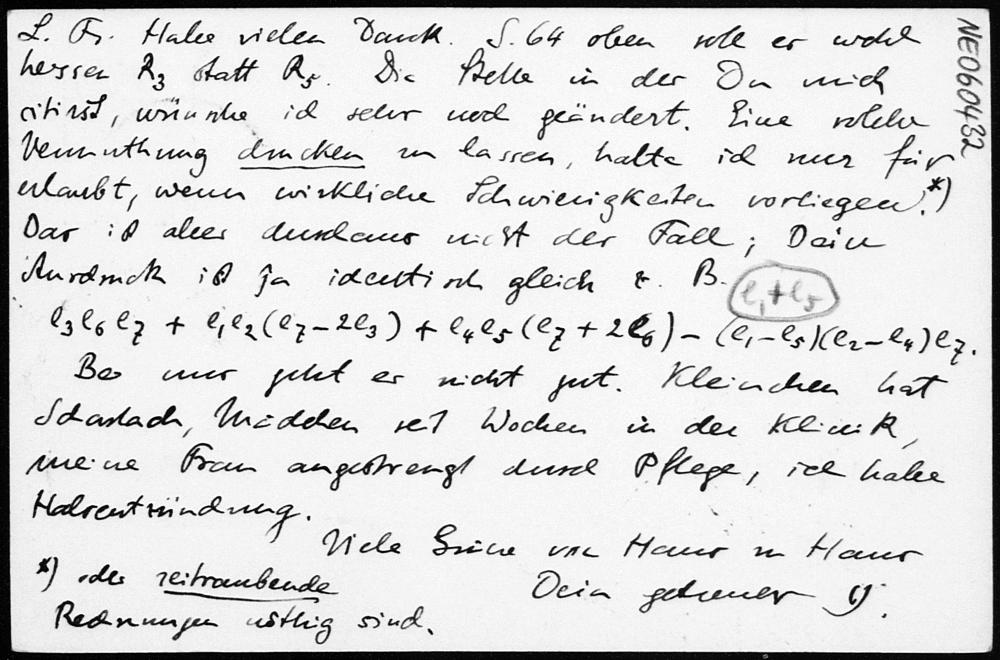 L. Fr. Habe vielen Dank. S. 64 oben soll es wohl
heissen R₃ statt R₅. Die Stelle in der Du mich
citirst, wünsche ich sehr noch geändert. Eine solche
Vermuthung drucken zu lassen, halte ich nur für
erlaubt, wenn wirkliche Schwierigkeiten vorliegen.*)
Das ist aber durchaus nicht der Fall; Dein
Ausdruck ist ja identisch gleich z. B.
e₁+e₅
e₃e₆e₇ + e₁e₂(e₇−2e₃) + e₄e₅(e₇+2e₆) − (e₁−e₅)(e₂−e₄)e₇.
Bei uns geht es nicht gut. Kleinchen hat
Scharlach, Mädchen seit Wochen in der Klinik,
meine Frau angestrengt durch Pflege, ich habe
Halsentzündung.
Viele Grüsse von Haus zu Haus
Dein getreuer
*) oder zeitraubende
Rechnungen nöthig sind.
NE060432